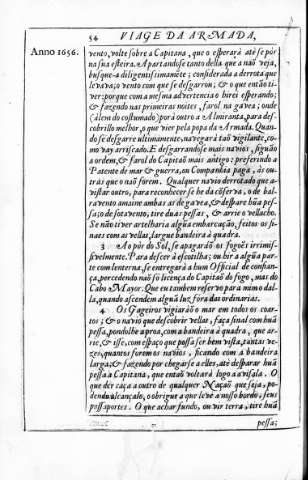 54 VIAGE DA ARMADA,
Anno 1656.
vento, volte sobre a Capitana, que o esperarà atè se pòr
na sua esteira. Apartandose tanto della que a não veja,
busque a diligentissimamẽte; considerada a derrota que
levava, o vento com que se desgarrou, & o que entaõ ti-
ver: porque com a mesma advertencia o hirei esperando;
& fazendo nas primeiras noites, farol na gavea; onde
(àlem do costumado) porà outro a Almiranta, para des-
cobrillo melhor, o que vier pela popa da Armada. Quan-
do se desgarre ultimamente, navegarà taõ vigilante, co-
mo vay arriscado. E desgarrandose mais navios, siguão
a ordem, & farol do Capitaõ mais antigo: preferindo a
Patente de mar & guerra, em Companhia paga, às ou-
tras que o não forem. Qualquer navio derrotado que a-
vistar outro, para reconhecerse he da cõserva, o de bal-
ravento amaine ambas as de gavea, & despare hũa pes-
sa; o de sotavento, tire duas pessas, & arrie o vellacho.
Se naõ tiver artelharia algũa embarcação, feitos os si-
naes com as vellas, largue bandeira à quadra.
3 Ao pòr do Sol, se apagaràõ os fogoẽs irrimis-
sivelmente. Para descer à escotilha; ou hir a algũa par-
te com lenterna, se entregarà a hum Official de confian-
ça, percedendo naõ só licença do Capitaõ do fogo, mas do
Cabo Mayor. Que eu tambem reservo para mim o dal-
la, quando ascendem algũa luz, fóra das ordinarias.
4 Os Gageiros vigiaràõ o mar em todos os coar-
tos; & o navio que descobrir vellas, faça sinal com hũa
pessa, pondolhe a proa, com a bandeira à quadra, que ar-
rie, & isse, com espaço que possa ser bem vista, tantas ve-
zes, quantos forem os navios, ficando com a bandeira
larga; & fazendo por chegarse a elles, atè desparar hũa
pessa a Capitana, que entaõ voltarà logo a avisala. O
que dèr caça a outro de qualquer Naçaõ que seja, po-
dendo alcançalo, o obrigue a que leve a nosso bordo, seus
passaportes. O que achar fundo, ou vir terra, tire hũa
pessa;